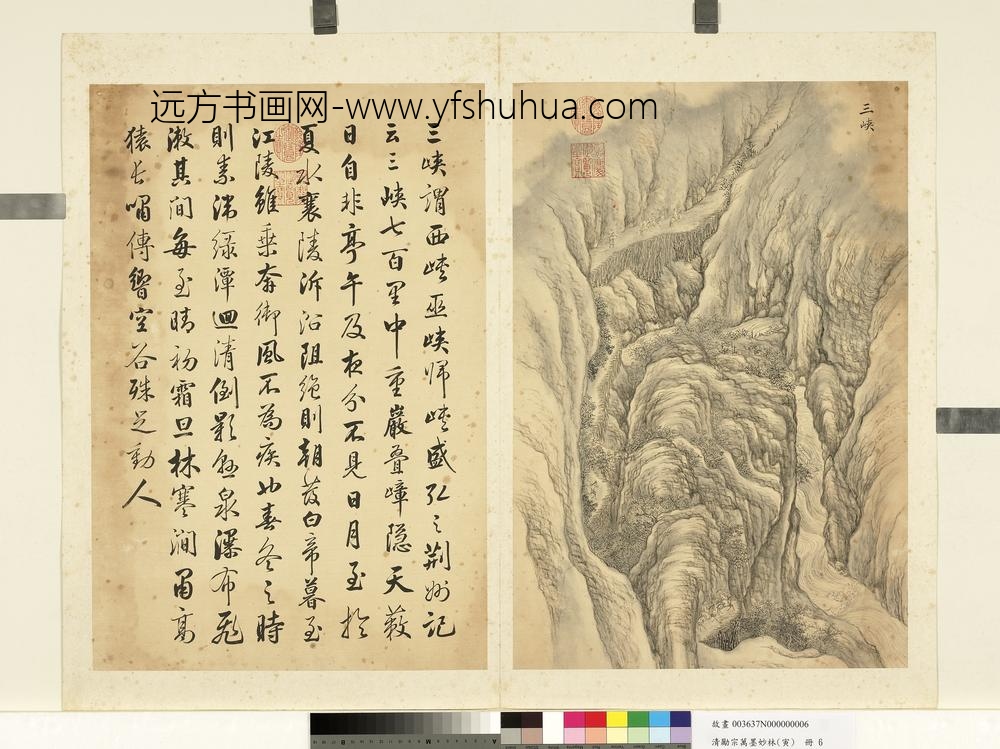 远方书画网-www.yfshuhua.com
三峽
三峽謂西峽巫峽歸峽盛弘之荊州記
云三峽七百里中重巖疊嶂隱天蔽
日自非亭午及夜分不見日月至於
夏水襄陵泝沿阻絕則朝發白帝暮至
江陵雖乘奔御風不為疾也春冬之時
則素湍綠潭迴清倒影懸泉瀑布飛
漱其間每至晴初霜旦林寒澗肅高
猿長嘯傳響空谷殊足動人
故畫 003637N000000006
清勵宗萬墨妙林(寅) 冊 6